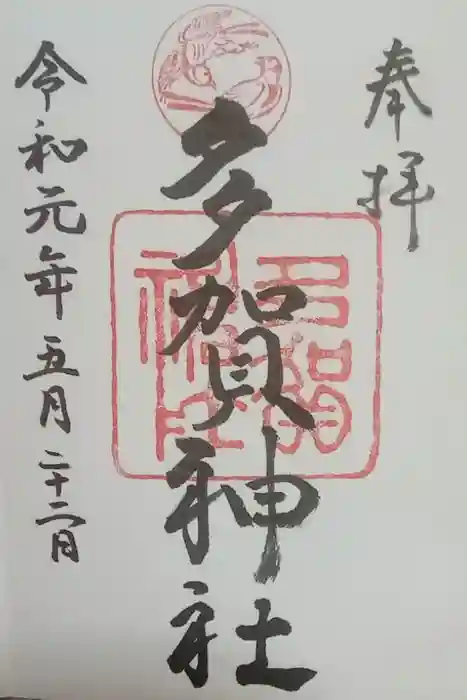 奉拝
多賀神社
多賀神社
令和元年五月二十二日